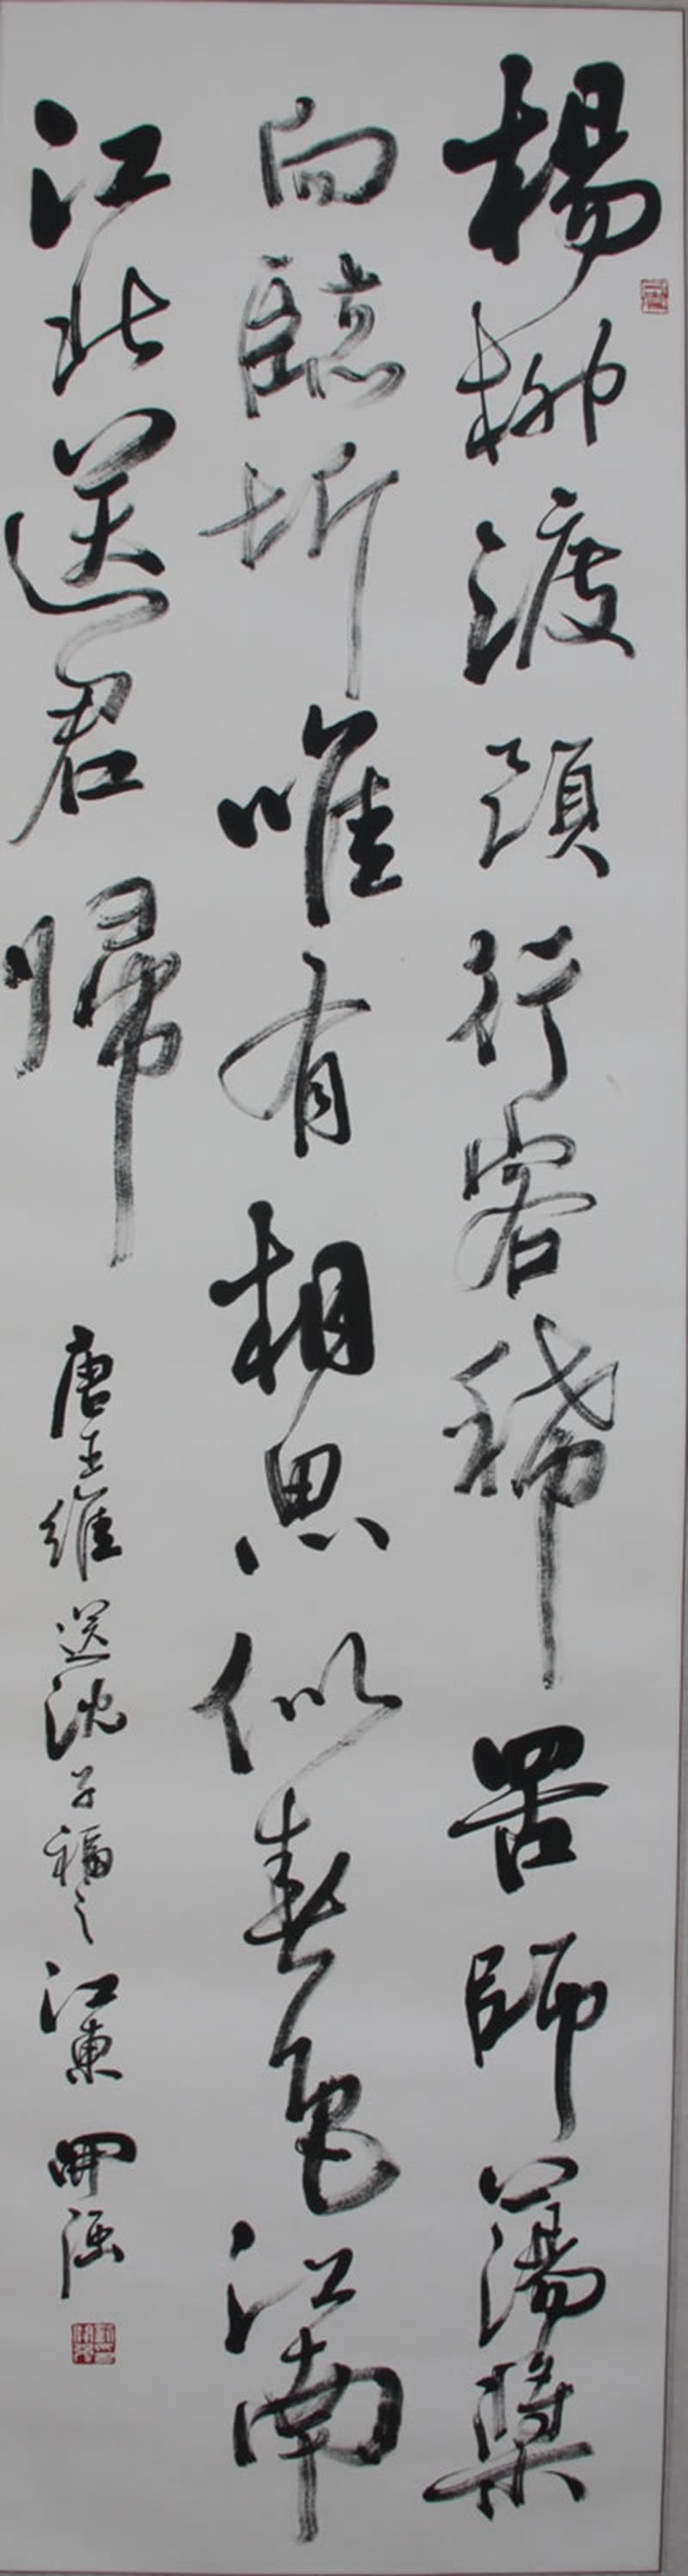 楊柳渡頭行客稀罟師蕩槳
向臨圻唯有相思似春色江南
江北送君歸
唐王維送沈子福之江東 開強